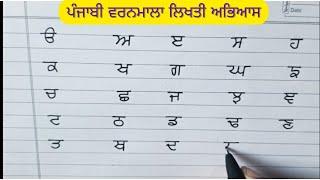 ਪੰਜਾਬੀ ਵਰਨਮਾਲਾ ਲਿਖਤੀ ਅਭਿਆਸ
Date
ੳ ਅ ੲ ਸ ਹ
ਕ ਖ ਗ ਘ ਙ
ਚ ਛ ਜ ਝ ਞ
ਟ ਠ ਡ ਢ ਣ
ਤ ਥ ਦ